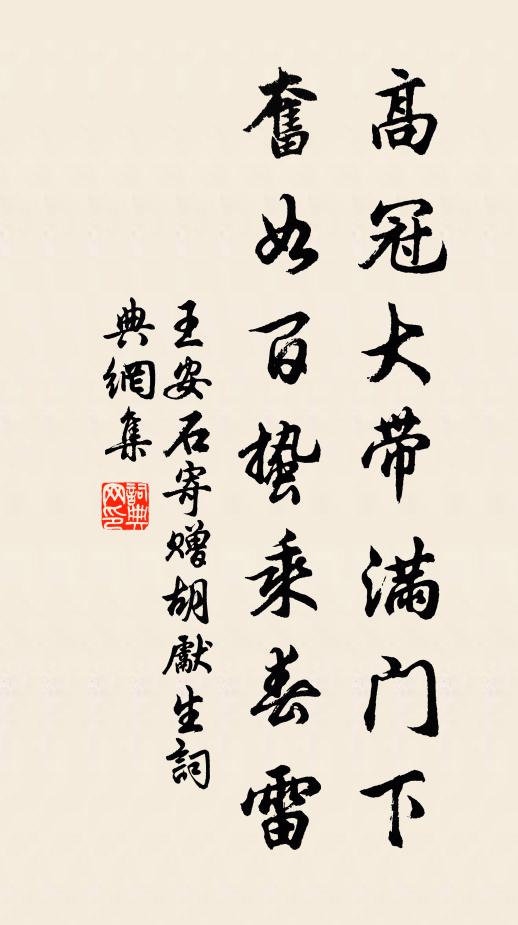 高冠大带满门下
奮如百蛰乘春雷
王安石寄赠胡獻生詞
典網集
詞典
网印